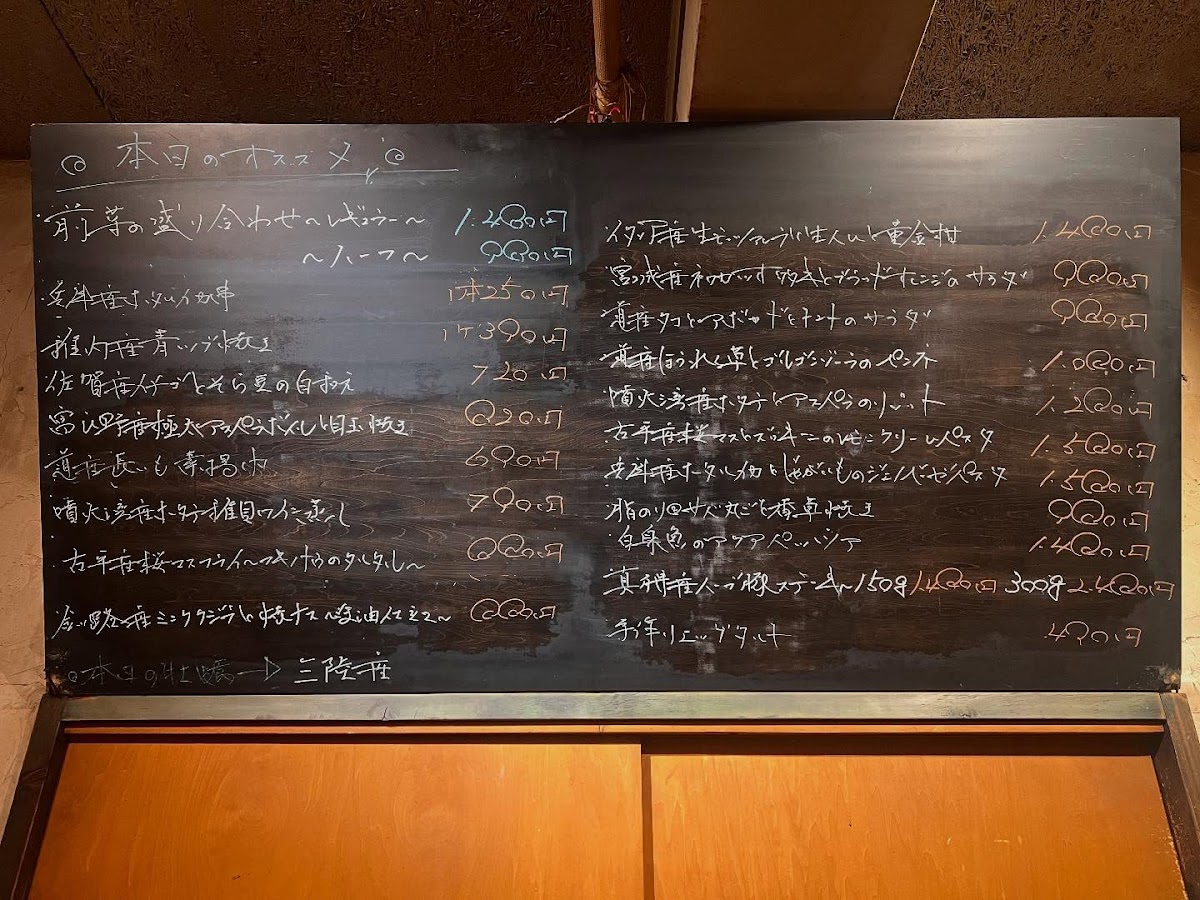 本日のオススメ
前菜の盛り合わせ〜レギュラー〜 1.480円
〜ハーフ〜 980円
兵庫産ホタルイカ串 1本250円
稚内産青ツブ焼き 1ケ390円
佐賀産イチゴとそら豆の白和え 720円
富良野産極太アスパラボイルと目玉焼き 820円
道産長いも唐揚げ 690円
噴火湾産ホタテ稚貝ワイン蒸し 790円
古平産桜マスフライ〜フキノトウのタルタル〜 880円
釧路産ミンククジラと焼ナス〜醤油仕立て〜 880円
本日の牡蠣→三陸産
イタリア産生モッツァレラと生ハムと黄金柑 1.480円
宮城産 とブラッドオレンジのサラダ 980円
道産タコとアボカドとトマトのサラダ 980円
道産ほうれん草とゴルゴンゾーラのペンネ 1.080円
噴火湾産ホタテとアスパラのリゾット 1.280円
古平産桜マスとズッキーニのレモンクリームパスタ 1.580円
兵庫産ホタルイカとじゃがいものジェノベーゼパスタ 1.580円
脂のり◎サバ丸ごと香草焼き 980円
白身魚のアクアパッツァ 1.480円
真狩産ハーブ豚ステーキ〜150g 1.480円 300g 2.480円
手作りエッグタルト 490円